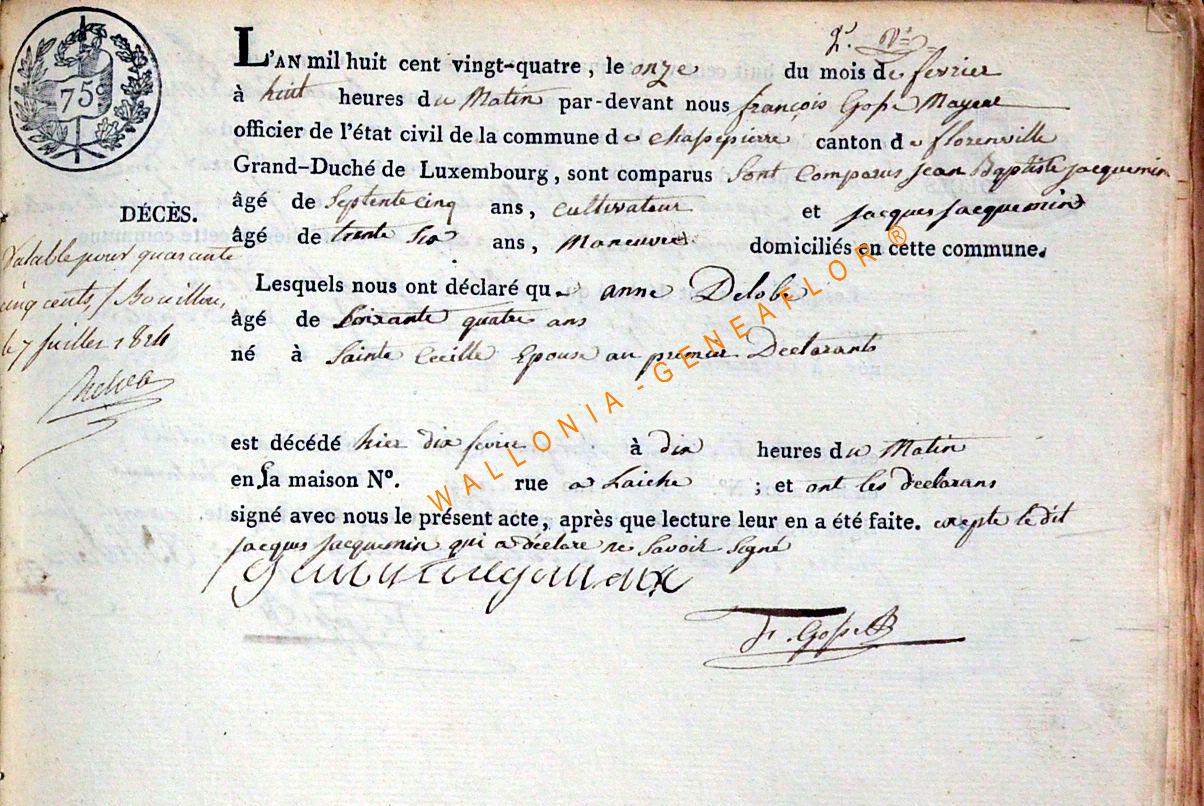 2.
75
L'AN mil huit cent vingt-quatre, le onze du mois de fevrier
à huit heures du Matin par-devant nous françois Gosse Mayeur
officier de l'état civil de la commune de chassepierre canton de florenville
Grand-Duché de Luxembourg, sont comparus Sont Comparus jean Baptiste jacquemin
âgé de Septente cinq ans, cultivateur et jacques jacquemin
âgé de trente ans, Maneuvre domiciliés en cette commune.
DÉCÈS.
Valable pour quarante
cinq cents / Bouillon,
le 7 juillet 1824
Lesquels nous ont déclaré que anne Delobe
âgé de Soixante quatre ans
né à Sainte Cecille Epouse au premier Declarants
est décédé hier dix fevrier à dix heures du Matin
en sa maison N°. rue a Laiche ; et ont les declarans
signé avec nous le présent acte, après que lecture leur en a été faite. excepte le dit
jacques jacquemin qui a declare ne Savoir Signé
F. Gosse
WALLONIA - GENEAFLOR ®